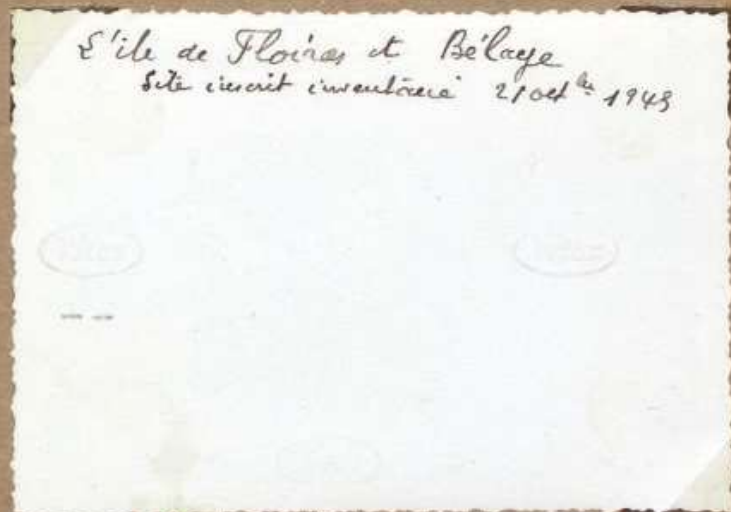 L'ile de Floiras et Bélaye
Site inscrit inventaire 21 octbre 1949